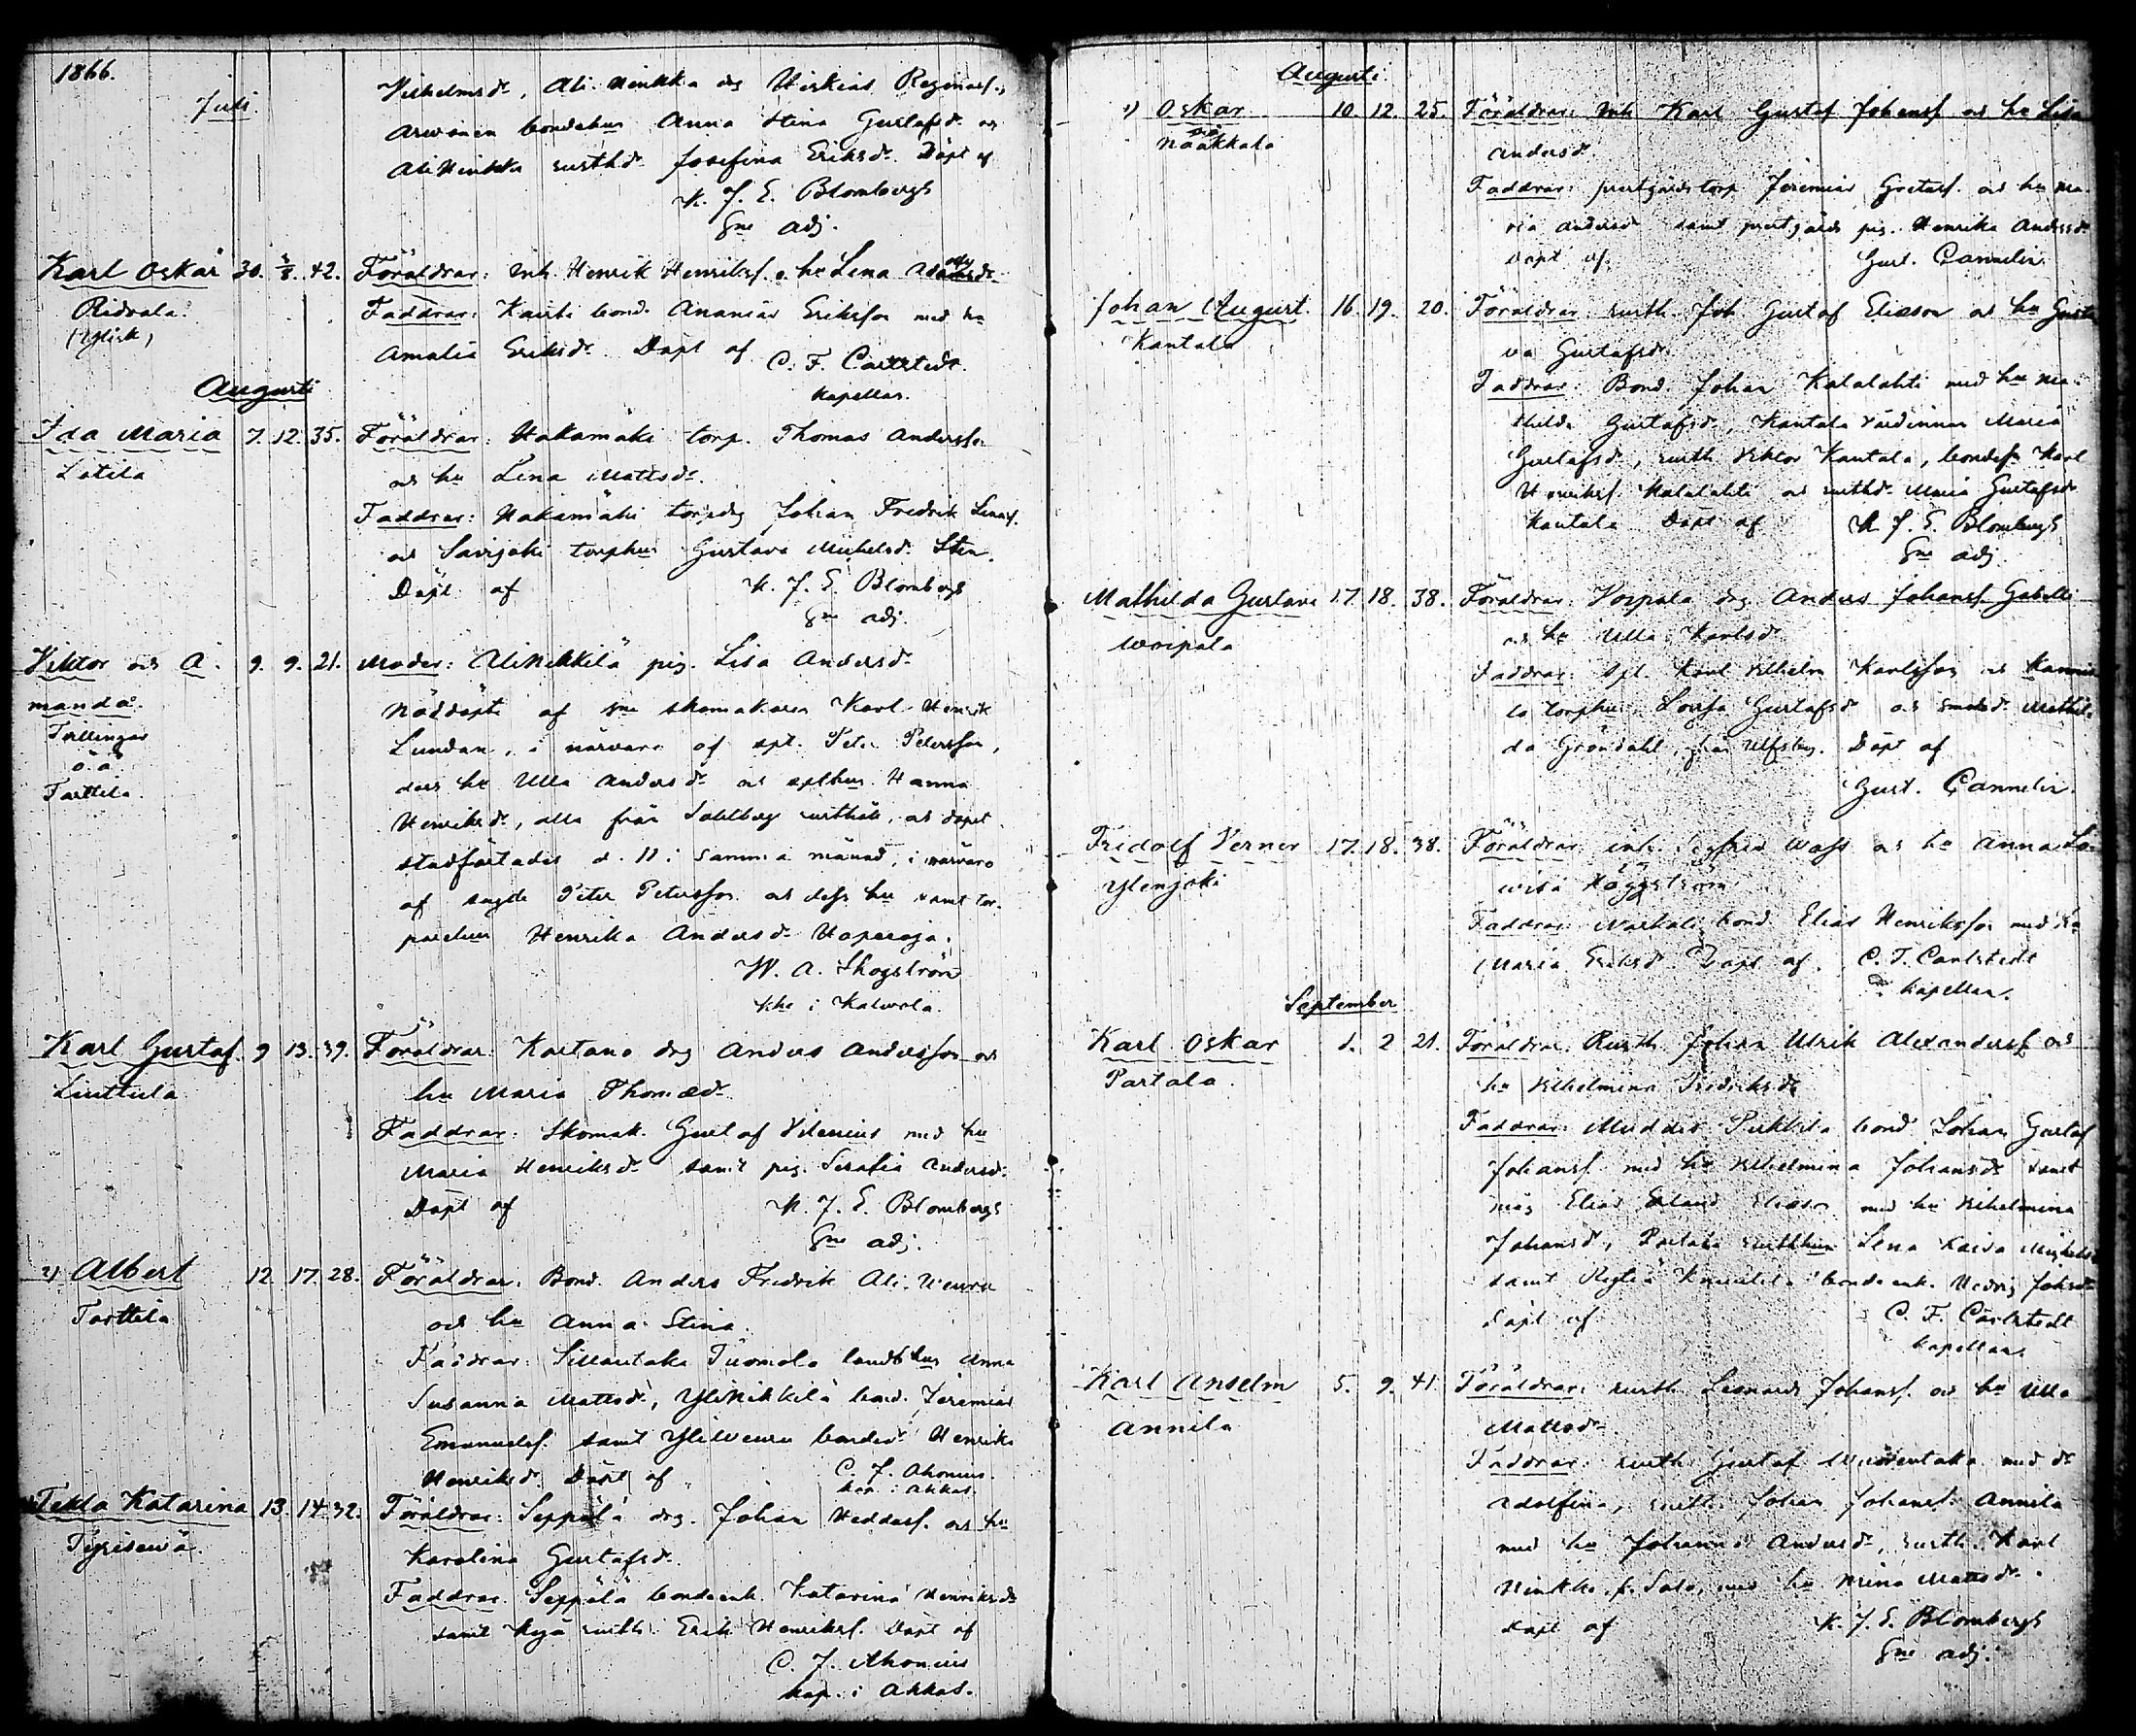 1866.
Juli.
Vilhelmsd., Ali. Heikkä drg Hiskias Reginas.,
Arwonen bondehu Anna Stina Gustafsd. och
Ali Heikkä rusthd. Josefina Eriksd. Döpt af
K. J. E. Blombergh
Sne Adj.
Karl Oskar 30. 5/8. 42. Föräldrar: Inh. Henrik Henriksf. o. hu Lena Adamsd.
Ridvala.
Faddrar: bond. Ananias Eriksson med hu
Amalia Eriksd. Döpt af C. F. Carlstedt.
Kapellan.
Augusti
Ida Maria 7. 12. 35. Föräldrar: Hakamäki torp. Thomas Anderss.
Lotila
och hu Lena Mattsd.
Faddrar: Hakamäki torpdrg Johan Fredrik
och Savijoki torphu Gustava Michelsd. Sten.
Döpt af K. J. E. Blombergh
Sne adj.
Viktor och A. 9. 9. 21. Moder: Ali Nikkilä pig. Lisa Andersd.
manda.
Nöddöpte af sne skomakaren Karl Henrik
Tvillingar
Lundan, i närvaro af spt. Peter Petersson,
o. ä.
dess hu Ulla Andersd. och spthu Hanna
Tarttila.
Henriksd., alla från Sahlberg rusthåll, och dopet
stadfästades d. 11 i samma månad, i närvaro
af sagde Peter Petersson och dess hu samt tor-
parehu Henrika Andersd. Haparoja.
W. A. Skogström
Khe i Kalvola.
Karl Gustaf. 9 13. 39. Föräldrar: Kaetano drg Anders Andersson och
Linttula
hu Maria Thomasd.
Faddrar: Skomak. Gustaf Vilenius med hu
Maria Henriksd. samt pig. Serafia Andersd.
Döpt af K. J. E. Blombergh
Sne adj.
2) Albert 12. 17. 28. Föräldrar: Bond. Anders Fredrik Ali-Heuru
Tarttila
och hu Anna Stina.
Faddrar: Sillantaka Tuomola landb. hu Anna
Susanna Mattsd., Yli Nikkilä bond. Jeremias
Emanuelsf. samt Yliheuru bonded. Henrika
Henriksd. Döpt af C. J. Ahonius
kap. i Akkas.
Tekla Katarina 13. 14. 32. Föräldrar: Seppälä drg. Johan Heddarf. och hu
Tyrisevä.
Karolina Gustafsd.
Faddrar: Seppälä bondeenk. Katarina Henriksd.
samt Kyä rusth. Erik Henriksf. Döpt af
C. J. Ahonius
kap. i Akkas.
Augusti.
1) Oskar 10. 12. 25. Föräldrar: Inh. Karl Gustaf Johansf. och hu Lisa
Naakkala
Andersd.
Faddrar: prestgårds torp. Jeremias Gustafs. och hu Ma-
ria Andersd. samt prestgårds pig. Henrika Andersd.
Döpt af Gust. Cannelin.
Johan August. 16. 19. 20. Föräldrar: rusth. Joh Gustaf Eliasson och hu Gusta
Kantala
va Gustafsd.
Faddrar: Bond. Johan Kalalahti med hu Ma-
thilda Gustafsd., Kantala värdinnan Maria
Gustafsd., rusth. Viktor Kantala, bondesn Karl
Henriksf. Kalalahti och rusthd. Maria Gustafsd.
Kantala Döpt af K. J. E. Blombergh
Sne adj.
Mathilda Gustava 17. 18. 38. Föräldrar: Voipala drg Anders Johansf. Gabelli
Woipala
och hu Ulla Karlsd.
Faddrar: Spt. Karl Vilhelm Karlsson och
la torphu Lovisa Gustafsd. och smedsd. Mathil-
da Gröndahl, från Ulfsby. Döpt af
Gust. Cannelin.
Fridolf Verner 17. 18. 38. Föräldrar: inh. Sigfrid Wass och hu Anna Lo-
Ylenjoki
wisa Häggström
Faddrar: bond. Elias Henriksson med hu
Maria Eriksd. Döpt af C. F. Carlstedt
Kapellan.
September
Karl Oskar 1. 2 21. Föräldrar: Rusth. Johan Ulrik Alexandersf. och
Partala.
hu Vilhelmina Fredriksd.
Faddrar: Muddis Pirkkila bond. Johan Gustaf
Johansf. med hu Vilhelmina Johansd. samt
måg Elias Erland Eliasson med hu Vilhelmina
Johansd., Partala rusthhu Lena Kaisa Michelsd.
samt bondeenk. Hedvig Johsd.
Döpt af C. F. Carlstedt
Kapellan.
Karl Anselm 5. 9. 41. Föräldrar: rusth. Leonard Johansf. och hu Ulla
Annila
Mattsd.
Faddrar: rusth. Gustaf med dr
Adolfina, rusth. Johan Johansf. Annila
med hu Johanna Andersd., rusth. Karl
Heikkilä f. Salo, med hu Mina Mattsd.
Döpt af K. J. E. Blombergh
Sne adj.